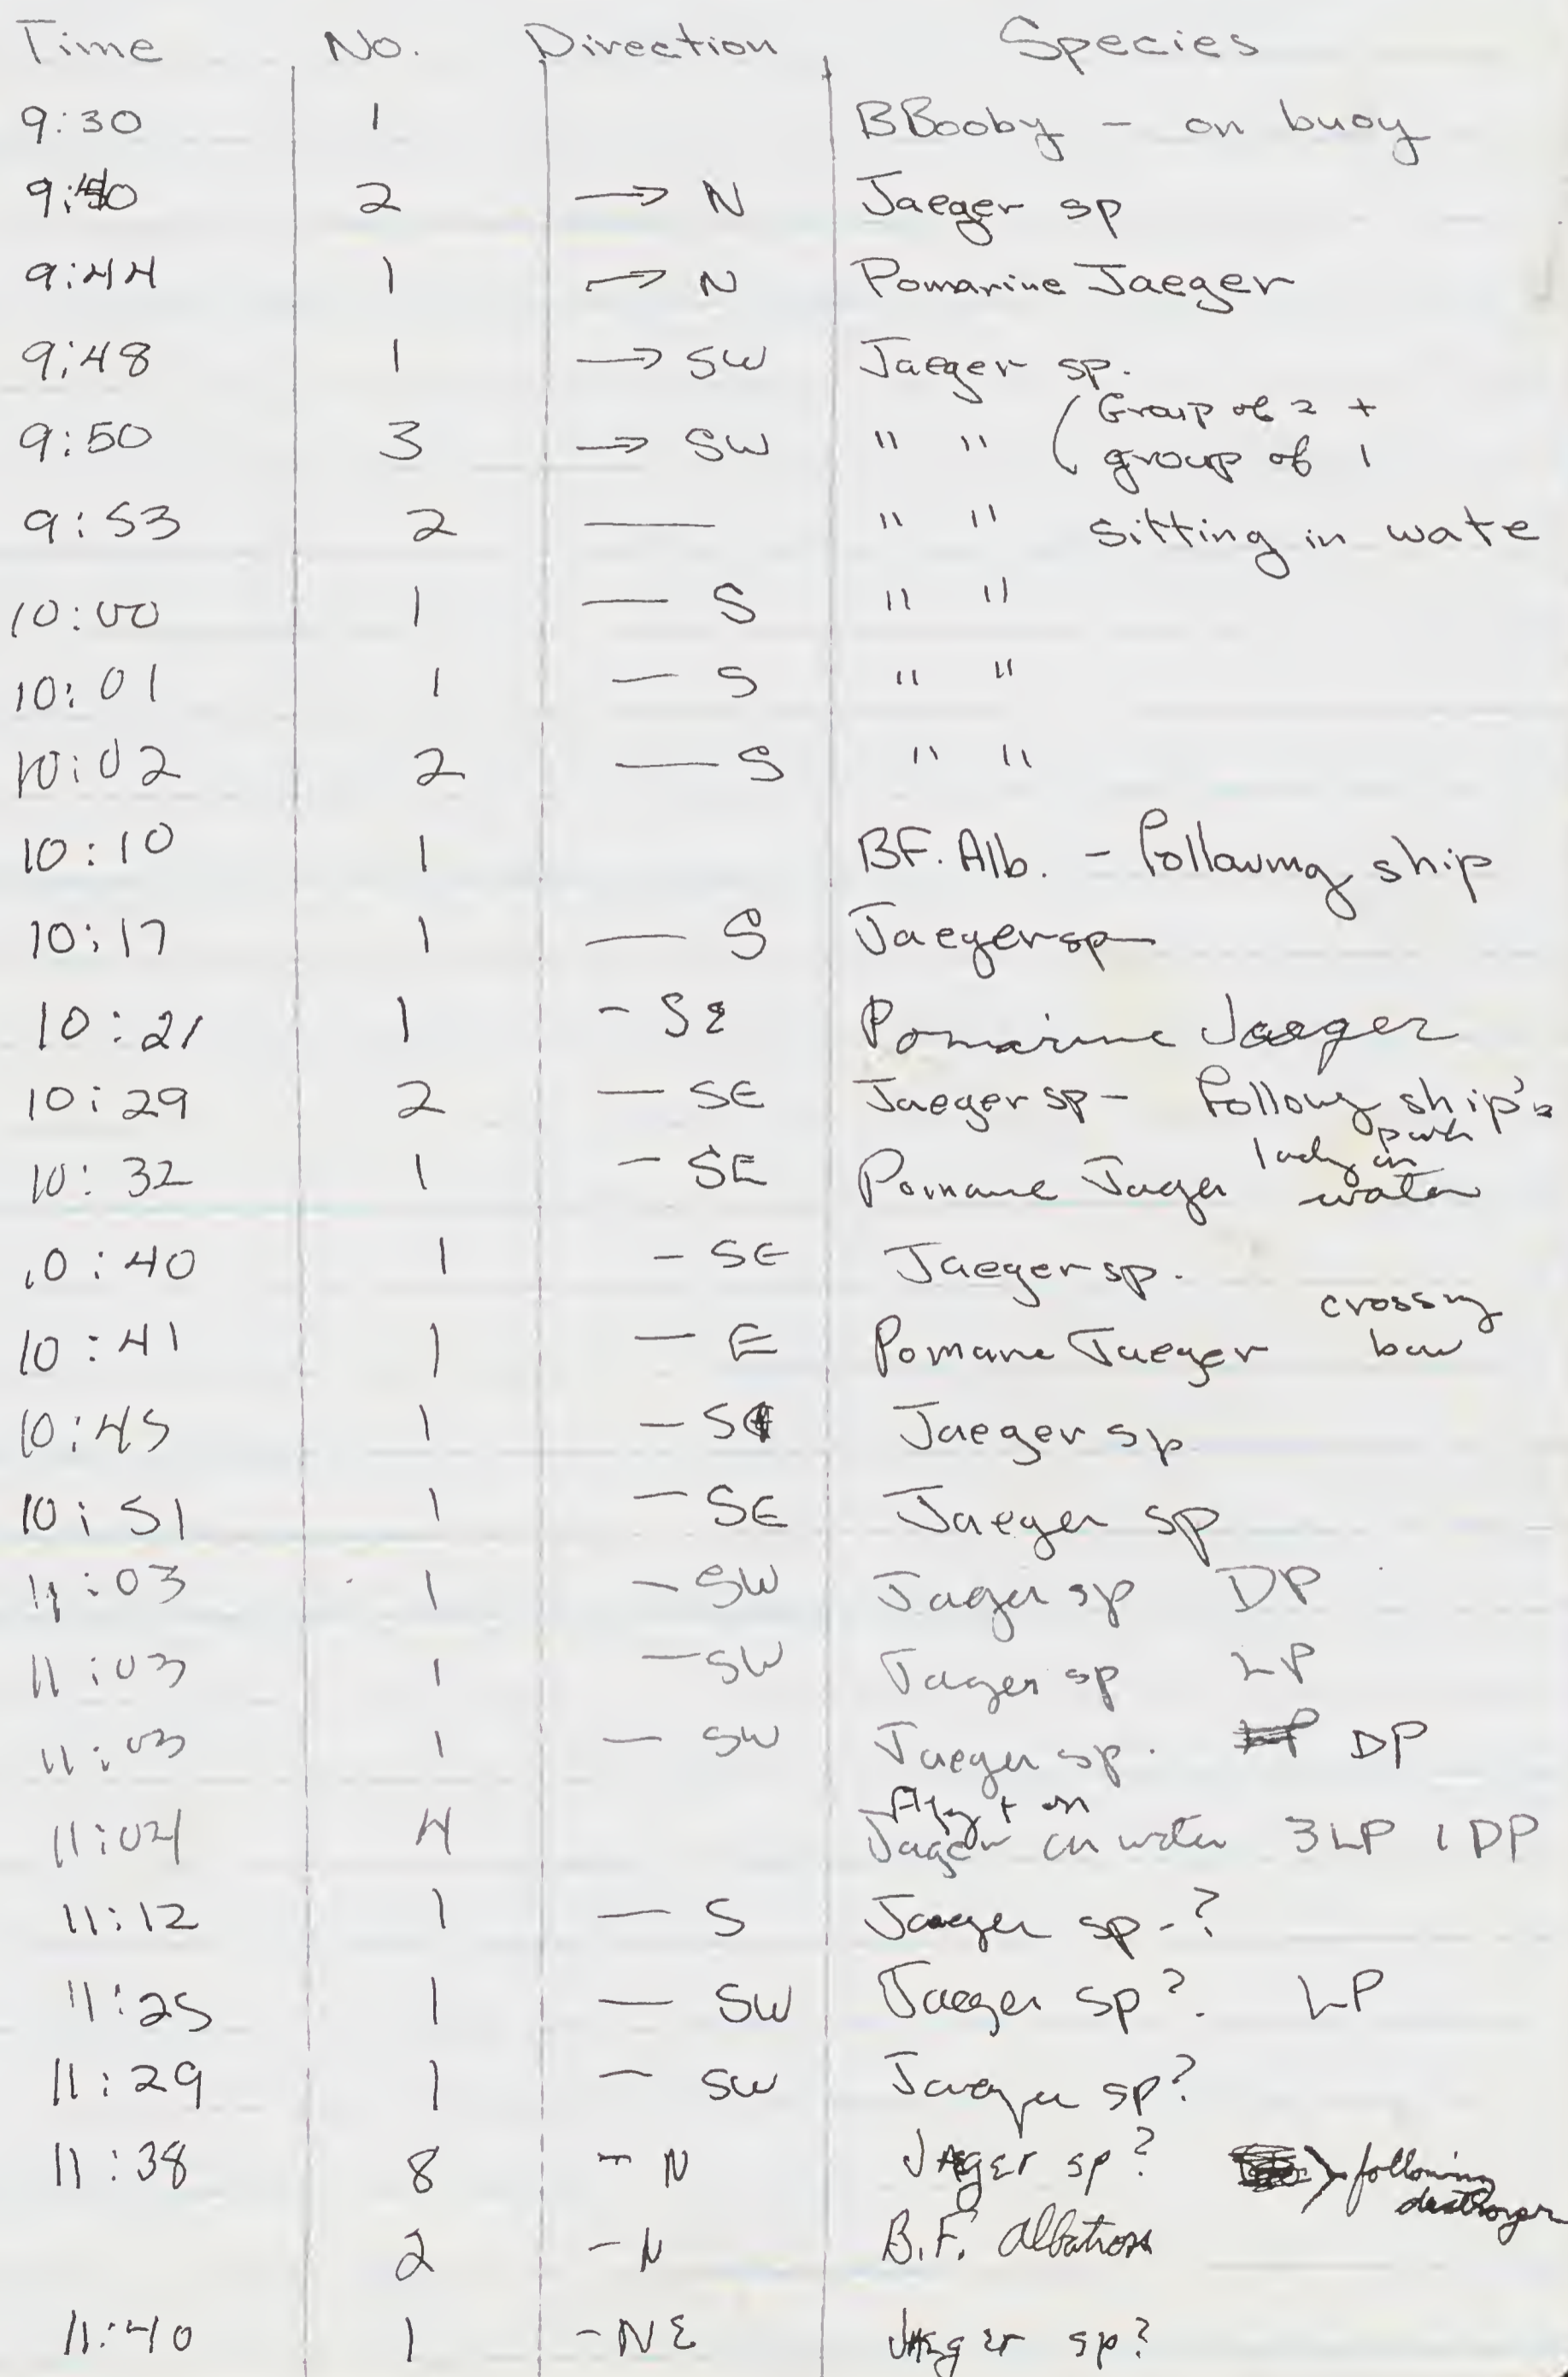 Time No. Direction Species
9:30 1 BBooby - on buoy
9:40 2 → N Jaeger sp
9:44 1 → N Pomarine Jaeger
9:48 1 → SW Jaeger sp.
9:50 3 → SW " " (Group of 2 +
group of 1
9:53 2 — " " sitting in wate
10:00 1 — S " "
10:01 1 — S " "
10:02 2 — S " "
10:10 1 BF. Alb. - following ship
10:17 1 — S Jaeger sp
10:21 1 - SE Pomarine Jaeger
10:29 2 — SE Jaeger sp - followg ship's
path
10:32 1 - SE Pomane Jager in
water
10:40 1 - SE Jaeger sp.
crossing
10:41 1 — E Pomane Jaeger bow
10:45 1 — S Jaeger sp
10:51 1 — SE Jaeger sp
11:03 1 — SW Jager sp DP
11:03 1 — SW Jager sp LP
11:03 1 — SW Jaeger sp. LP DP
Flyg + on
11:04 4 Jager on water 3 LP 1 DP
11:12 1 — S Jaeger sp - ?
11:25 1 — SW Jaeger sp?. LP
11:29 1 — SW Jaeger sp?
11:38 8 - N Jaeger sp? } following
destroyer
2 - N B.F. Albatross
11:40 1 - NE Jaeger sp?